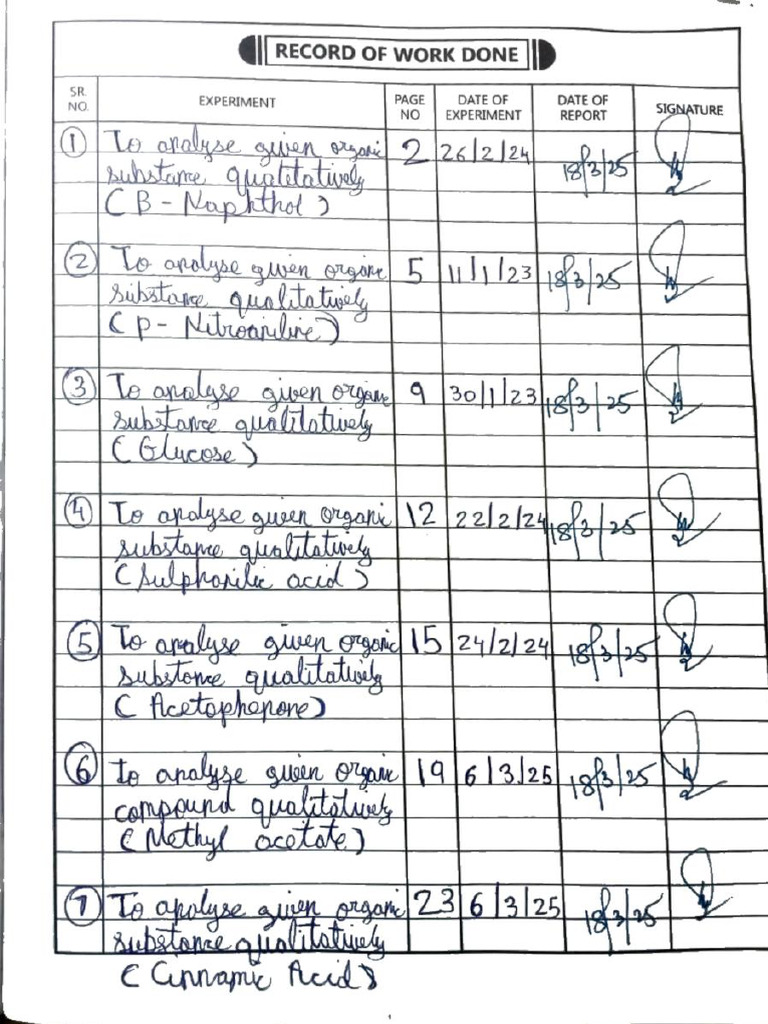 RECORD OF WORK DONE
SR. NO. EXPERIMENT PAGE NO DATE OF EXPERIMENT DATE OF REPORT SIGNATURE
① To analyse given organic 2 26/2/24 18/3/25
substance qualitatively
(B - Naphthol)
② To analyse given organic 5 11/1/23 18/3/25
substance qualitatively
(p - Nitroaniline)
③ To analyse given organic 9 30/1/23 18/3/25
substance qualitatively
(Glucose)
④ To analyse given organic 12 22/2/24 18/3/25
substance qualitatively
(Sulphanilic acid)
⑤ To analyse given organic 15 24/2/24 18/3/25
substance qualitatively
(Acetophenone)
⑥ To analyse given organic 19 6/3/25 18/3/25
compound qualitatively
(Methyl acetate)
⑦ To analyse given organic 23 6/3/25 18/3/25
substance qualitatively
(Cinnamic Acid)